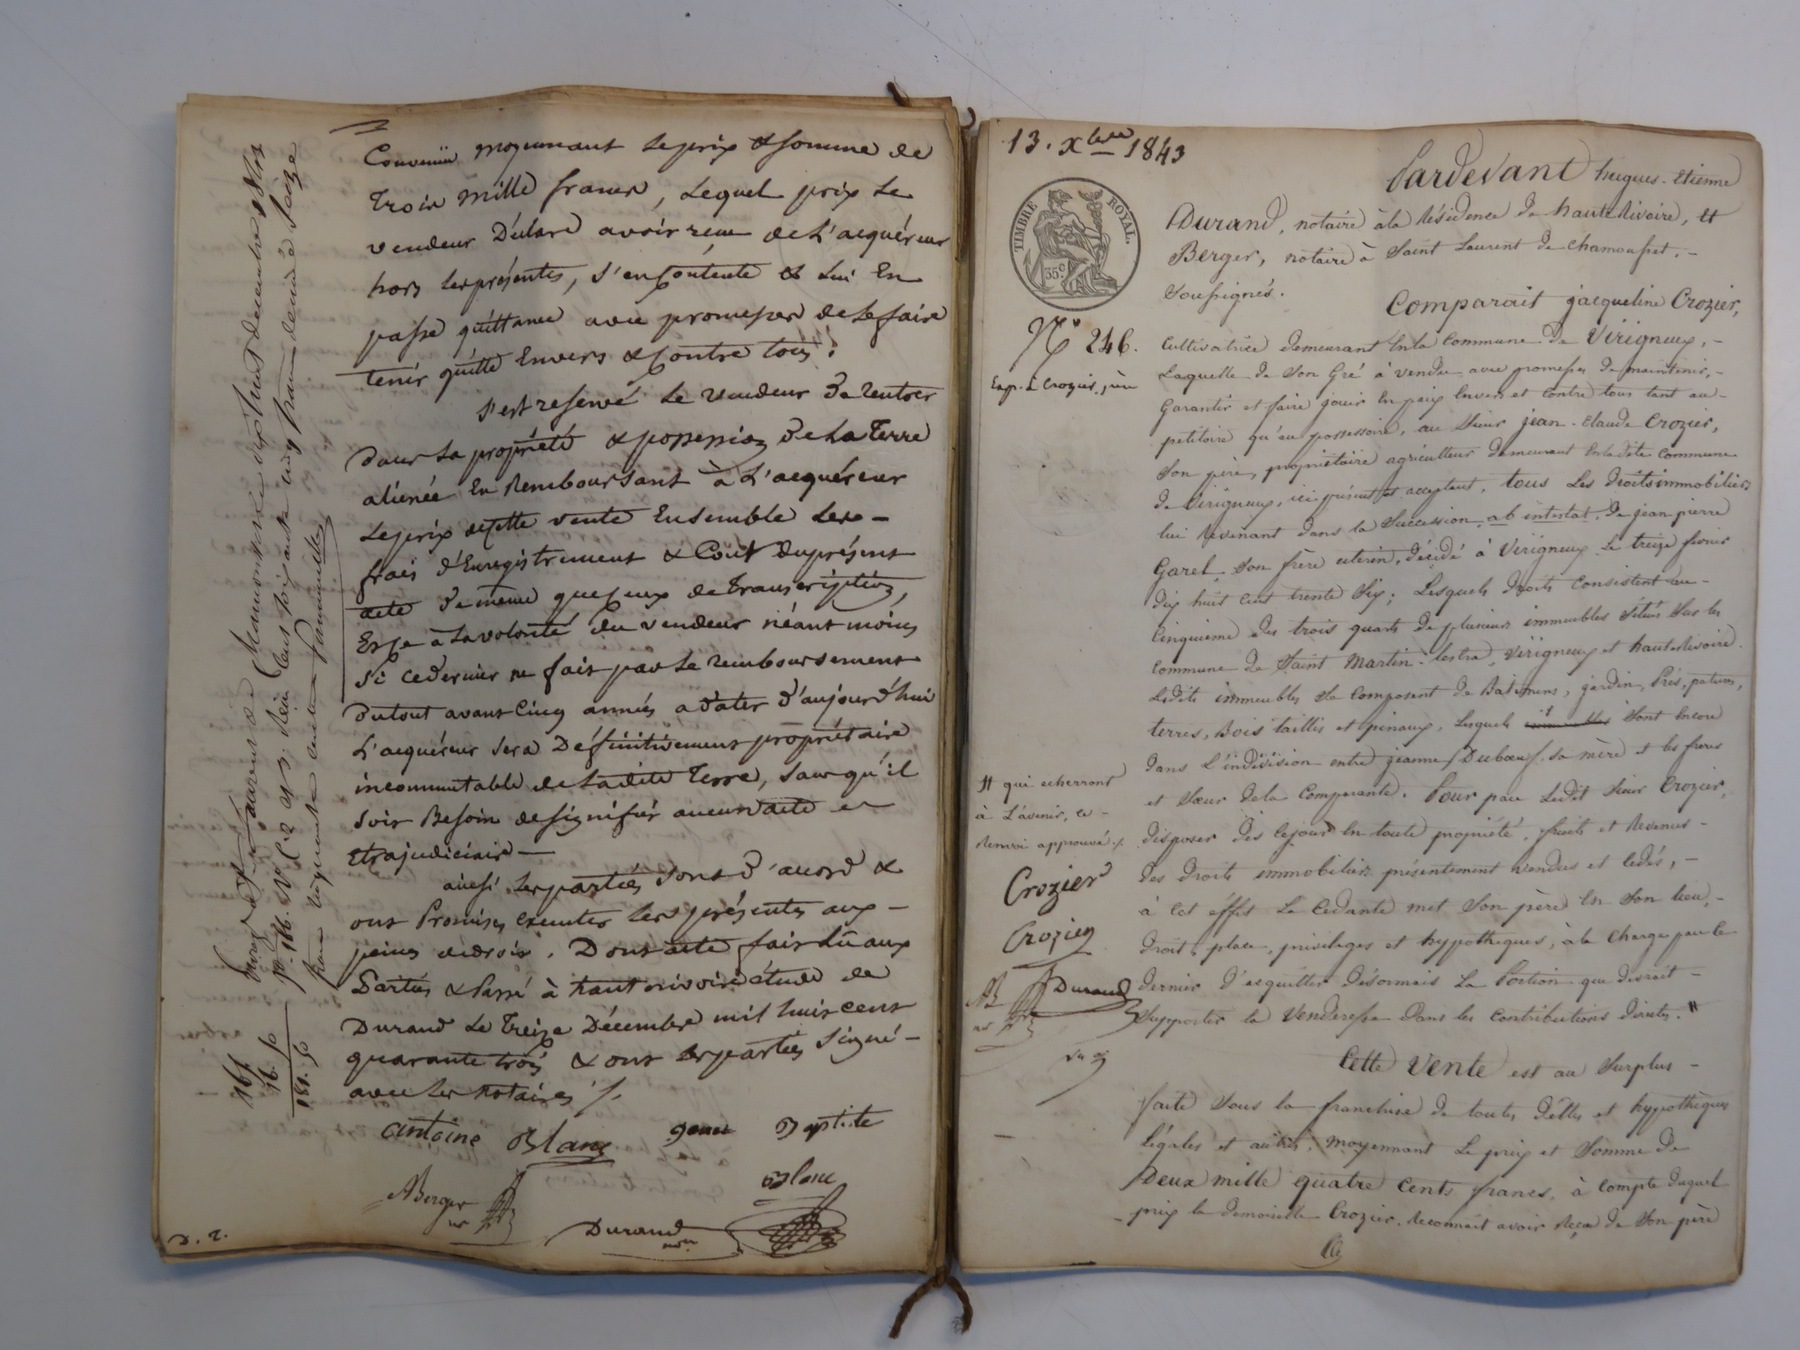 Convenüe moyennant le prix & somme de
Trois mille francs, Lequel prix Le
vendeur Déclare avoir reçu de L'acquéreur
hors les présentes, s'en contente & Lui En
passe quittance avec promesses de Le faire
tenir quitte Envers & contre tous.
s'est reservé Le vendeur De rentrer
Dans La propriété & possession De La Terre
aliénée En Remboursant à L'acquéreur
Le prix de cette vente Ensemble Les -
frais d'Enregistrement & Coût du présent
acte De même que ceux de Transcription,
à la volonté du vendeur néantmoins
si ce dernier ne fait pas Le remboursement
Du tout avant Cinq années a Dater d'aujourd'hui
L'acquéreur sera Définitivement propriétaire
incommutable de Ladite Terre, sans qu'il
soit Besoin de signifier aucun acte
Extrajudiciair -
ainsi Les parties sont d'accord &
ont Promis exécuter Les présentes aux -
peines de droit. Dont acte fait Lu aux
Parties & Passé à hauterivoire étude de
Durand Le Treize Décembre mil huit cent
quarante trois & ont Les parties signé -
avec Les notaires /.
antoine Blanc Baptiste
Blanc
ABerger nre
Durand nore
165
16. 50
181. 50
13. Xbre 1843
TIMBRE ROYAL.
35 c
No 246.
Exp. à Crozier, père
Pardevant hugues-Etienne
Durand, notaire à la Résidence de hauteRivoire, et
Berger, notaire à Saint Laurent de Chamousset. -
Soussignés.
Comparait jacqueline Crozier,
Cultivatrice demeurant En la Commune de Virigneux, -
Laquelle de Son Gré a vendu avec promesses de maintenir, -
Garantir et faire jouir En paix Envers et Contre tous tant au -
petitoire qu'au possessoire, au Sieur jean-Claude Crozier,
Son père, propriétaire agriculteur demeurant En ladite Commune
de Virigneux, ici présent et acceptant, tous Les Droits immobiliers
lui Revenant dans la Succession ab intestat, de jean pierre
Garel, Son frère utérin, décédé à Virigneux Le treize fevrier
dix huit cent trente Six; Lesquels Droits Consistent au -
Cinquième des trois quarts de plusieurs immeubles Situés Sur les
Commune de Saint Martin-Lestra, Virigneux et hauteRivoire.
Lesdits immeubles Se Composent de Batimens, jardin, Prés, patures,
terres, Bois taillis et pinaux, Lesquels Sont Encore
dans L'indivision entre jeanne Duboeuf, Sa mère et les freres
et Sœur de la Comparante. Pour par Ledit Sieur Crozier,
disposer dès ce jour En toute propriété, fruits et Revenus -
des droits immobiliers présentement vendus et Cédés, -
à cet effet La Cédante met Son père En Son lieu, -
Droit, place, privilèges et hypothèques, à la Charge par ce
dernier d'acquitter Désormais La Portion que devrait -
Supporter la Venderesse Dans les Contributions directes. #
# qui echerront
à L'avenir, ce -
Renvoi approuvé /.
Crozier
Crozier
AB Durand
Cette Vente est au Surplus -
faite Sous la franchise de toutes Dettes et hypothèques
légales et autres, moyennant Le prix et Somme de
Deux mille quatre Cents francs, à Compte duquel
prix la demoiselle Crozier Reconnait avoir Reçu de Son père